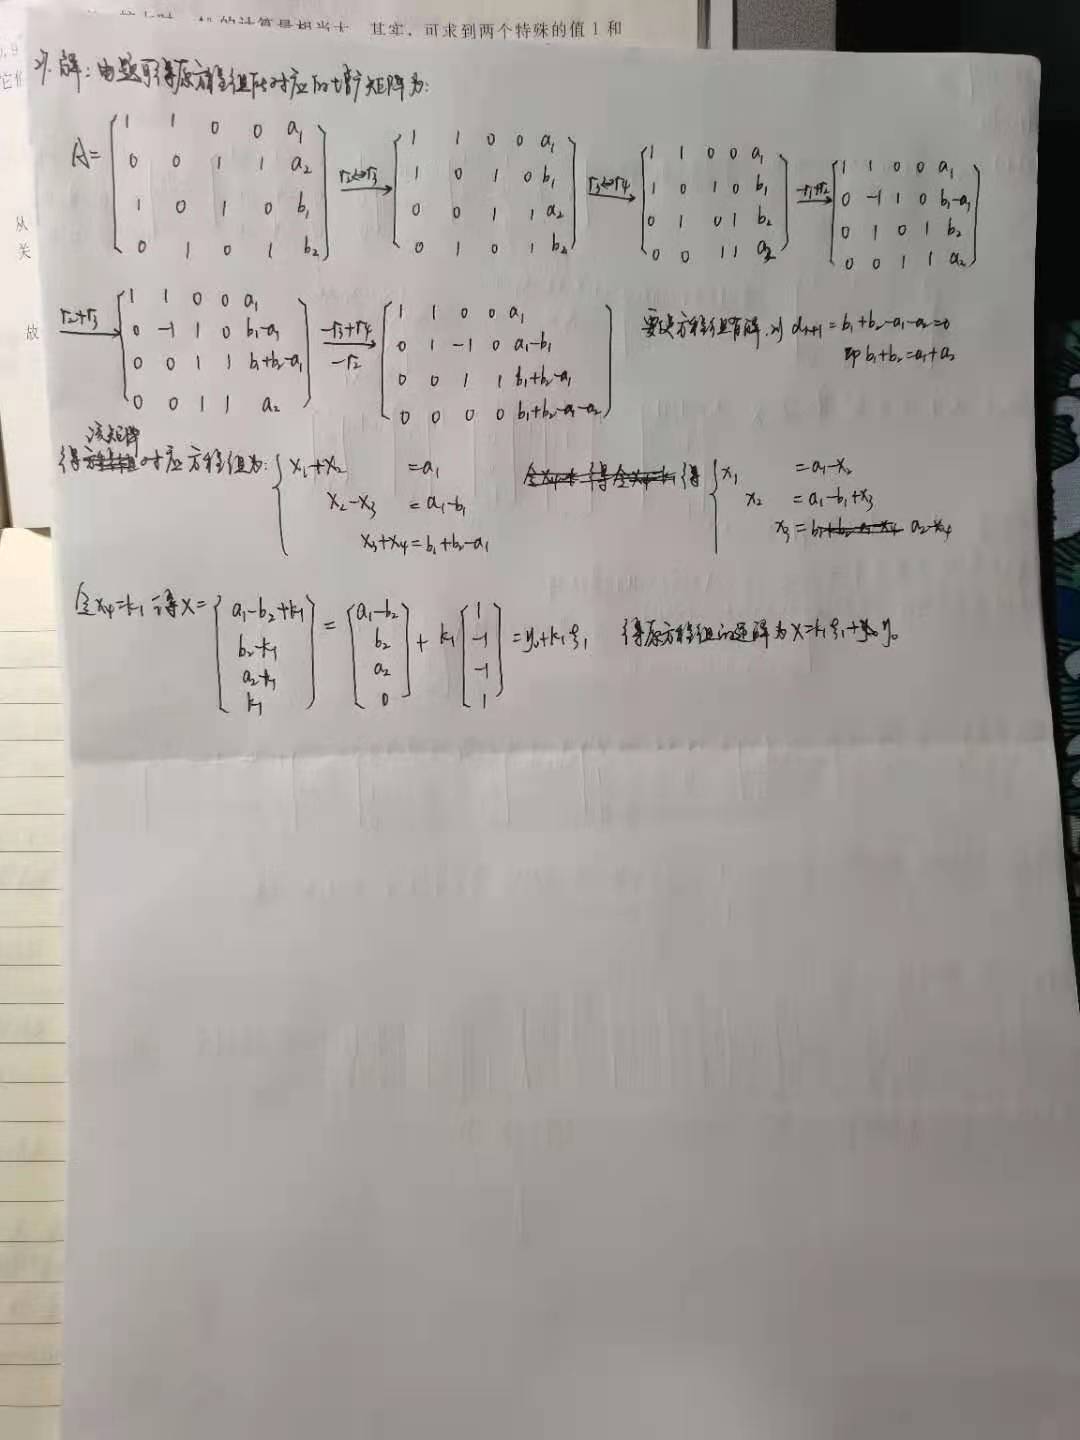 的计算量相当大 其实，可求到两个特殊的值 1 和
从
关
故
解：由题可得原方程组所对应的增广矩阵为：
A= [1 1 0 0 a₁; 0 0 1 1 a₂; 1 0 1 0 b₁; 0 1 0 1 b₂] r₂↔r₃ → [1 1 0 0 a₁; 1 0 1 0 b₁; 0 0 1 1 a₂; 0 1 0 1 b₂] r₃↔r₄ → [1 1 0 0 a₁; 1 0 1 0 b₁; 0 1 0 1 b₂; 0 0 1 1 a₂] -r₁+r₂ → [1 1 0 0 a₁; 0 -1 1 0 b₁-a₁; 0 1 0 1 b₂; 0 0 1 1 a₂]
r₂+r₃ → [1 1 0 0 a₁; 0 -1 1 0 b₁-a₁; 0 0 1 1 b₁+b₂-a₁; 0 0 1 1 a₂] -r₃+r₄ -r₂ → [1 1 0 0 a₁; 0 1 -1 0 a₁-b₁; 0 0 1 1 b₁+b₂-a₁; 0 0 0 0 b₁+b₂-a₁-a₂] 要使方程组有解，则 dᵣ₊₁=b₁+b₂-a₁-a₂=0
即 b₁+b₂=a₁+a₂
该矩阵
得 对应方程组为: { x₁+x₂ =a₁ 得 { x₁ =a₁-x₂
x₂-x₃ =a₁-b₁ x₂ =a₁-b₁+x₃
x₃+x₄=b₁+b₂-a₁ x₃= a₂-x₄
令x₄=k₁ 得X= [a₁-b₂+k₁; b₂-k₁; a₂-k₁; k₁] = [a₁-b₂; b₂; a₂; 0] + k₁ [1; -1; -1; 1] =η₀+k₁ξ₁ 得原方程组的通解为X=k₁ξ₁+η₀